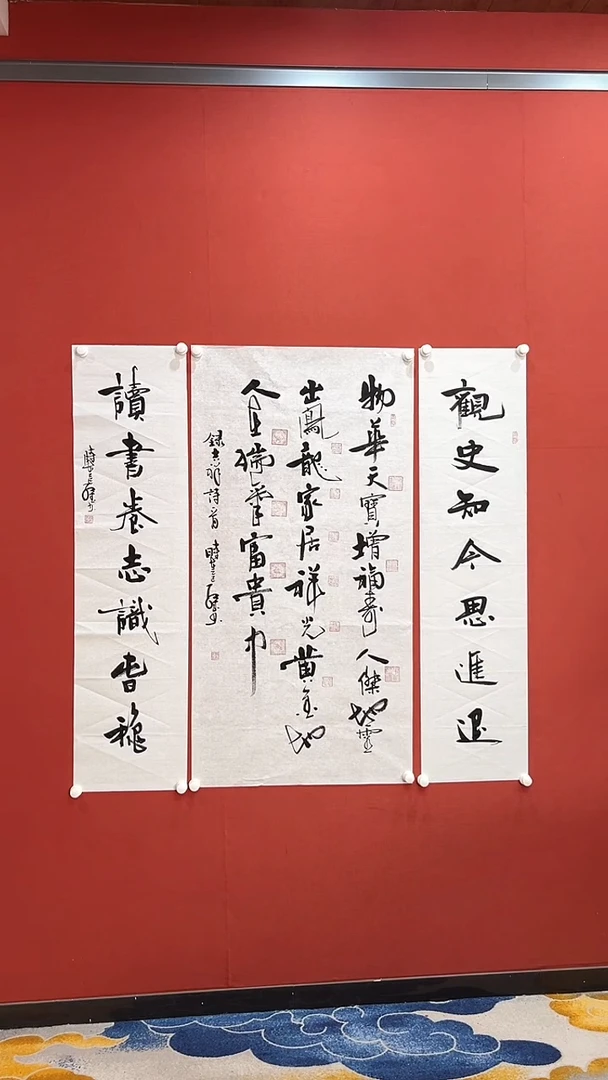 觀史知今思進退
物華天寶增福壽人傑地靈
出鳳龍家居祥光黃金地
人在瑞氣富貴中
錄吉祥詩一首
讀書養志識旾穐